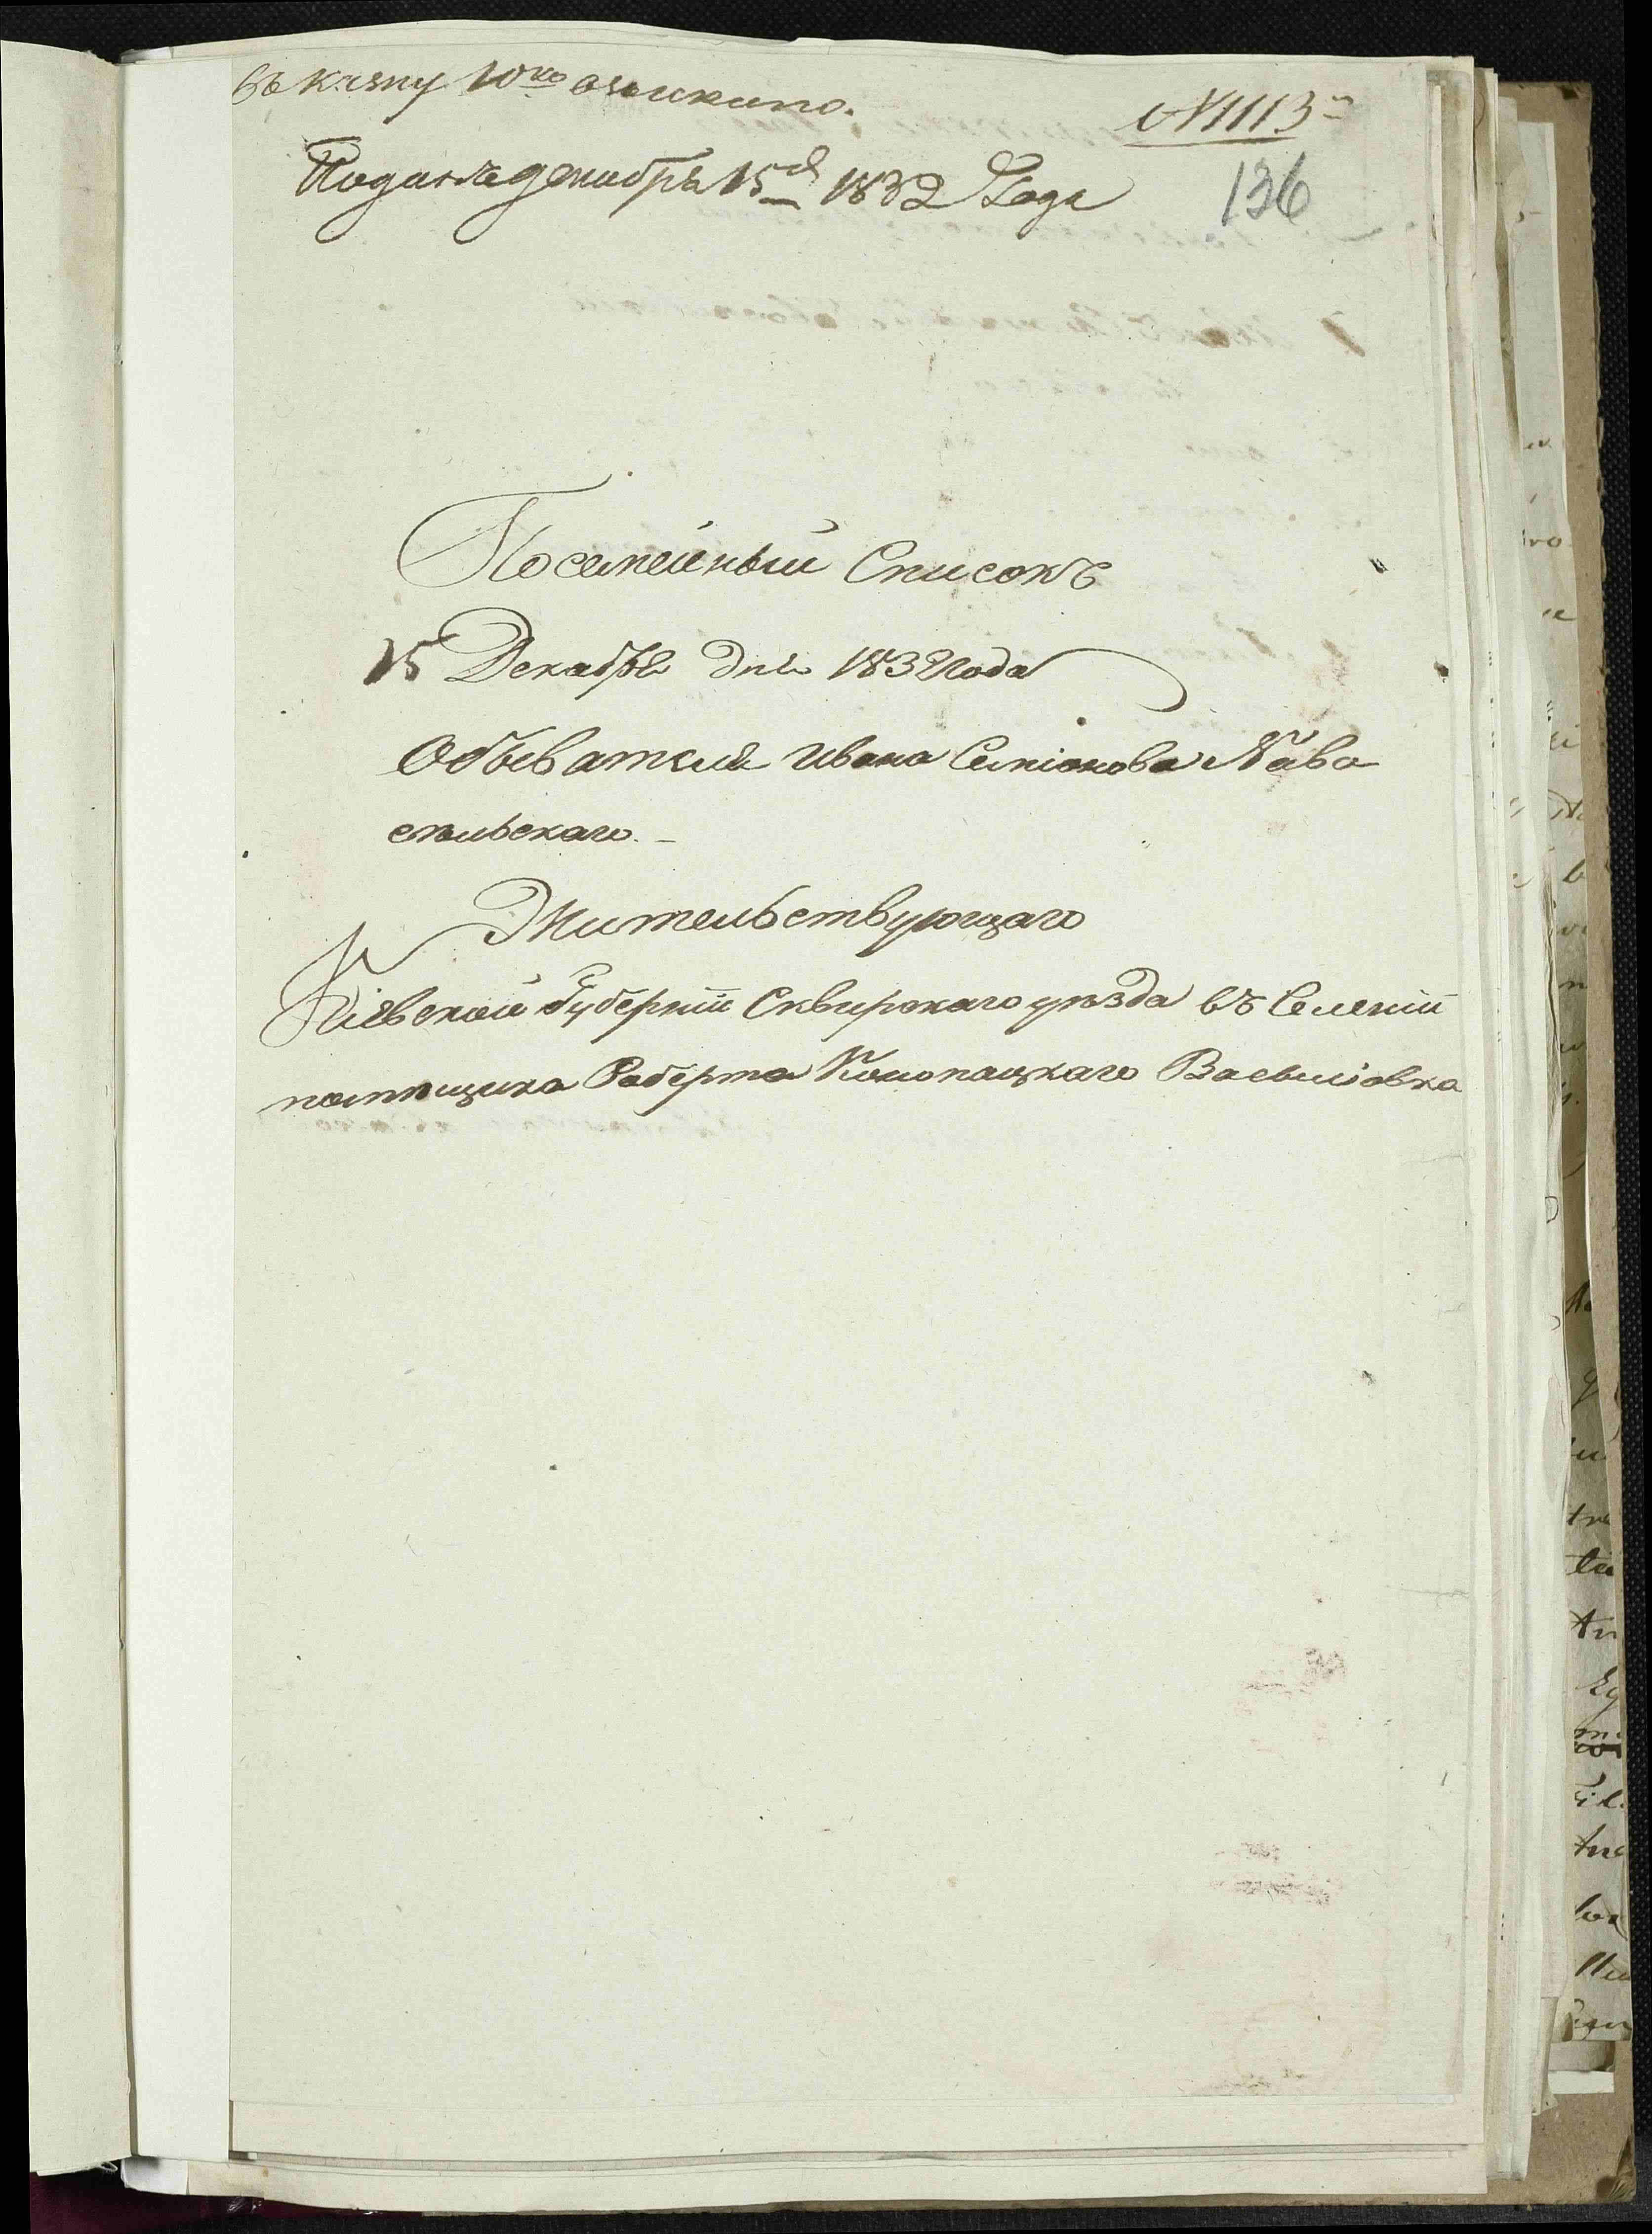 въ казну 10ко
№ 1113
Подан декабря 15д 1832 Года
136
Посемейный Списокъ
15 Декабря дня 1832 года
Обывателя Ивана Симіонова Нава
сельскаго. –
Жительствующаго
Кіевской Губерніи Сквирскаго уѣзда въ Селеніи
помѣщика Роберта Конопацкаго Васьилiовка